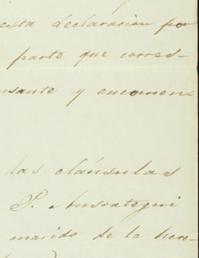 esta declaracion por
parte que corres-
usante y encomen
las cláusulas
P. Amorategui
marido de la her-